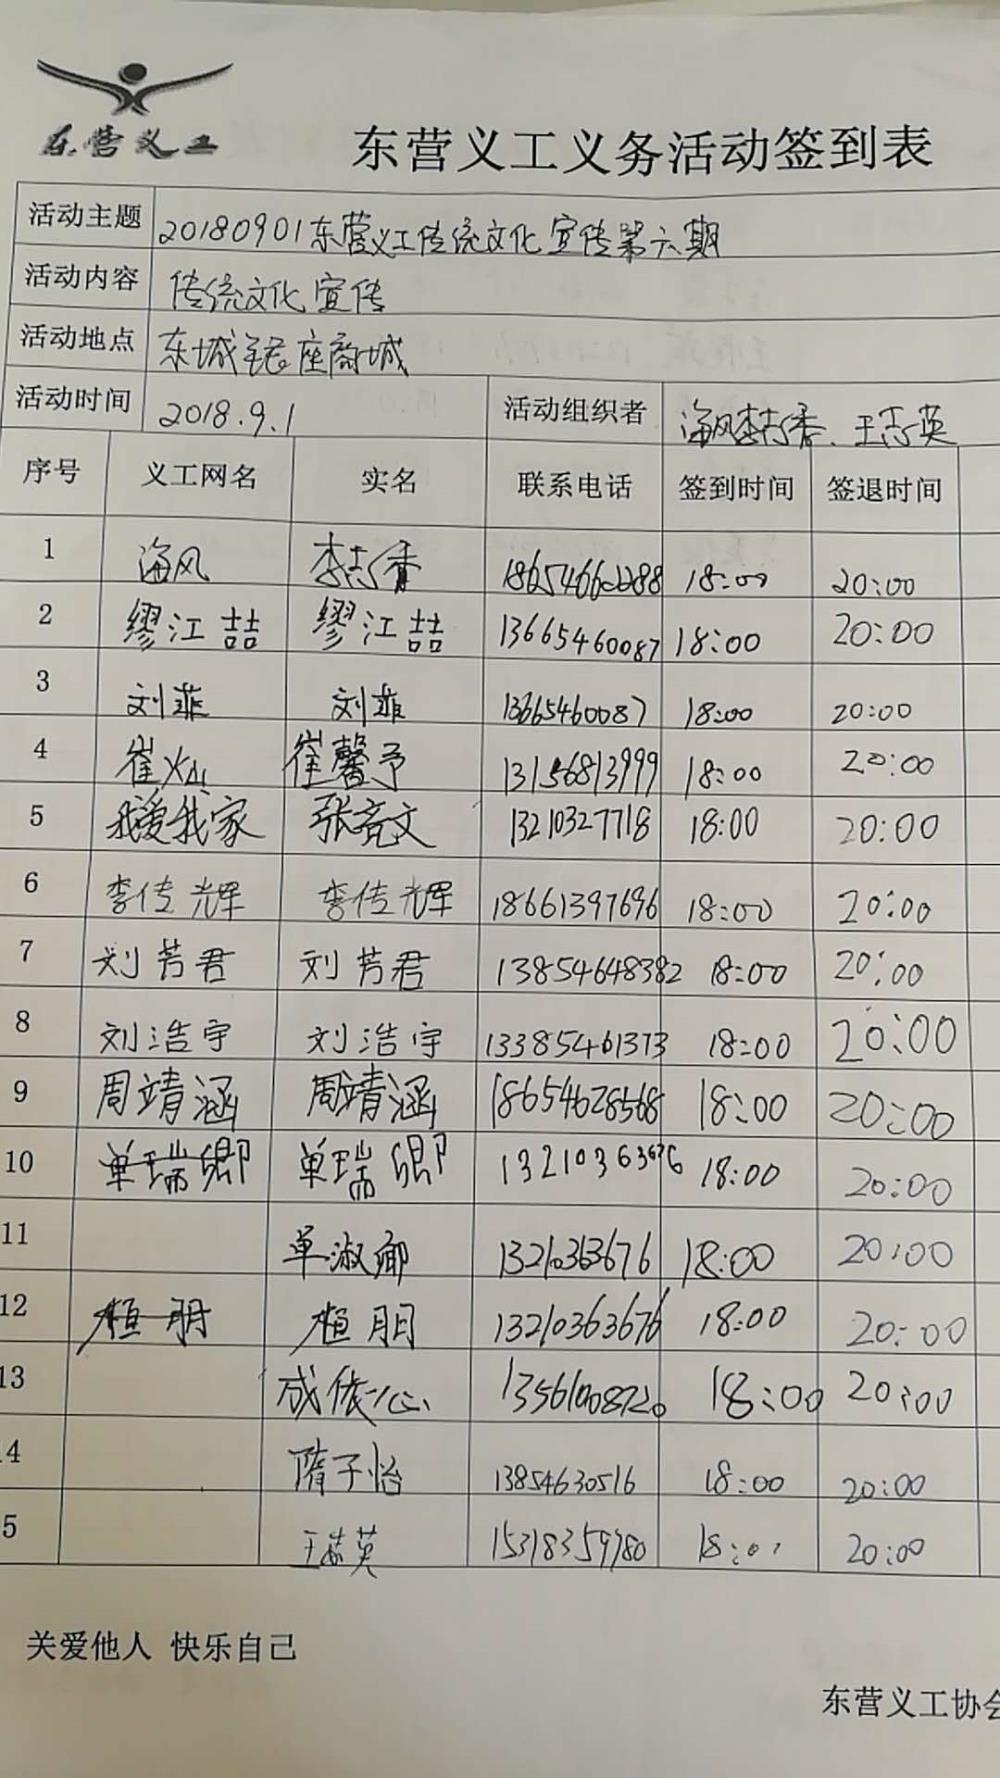 东营义工
东营义工义务活动签到表
活动主题 20180901东营义工传统文化宣传第六期
活动内容 传统文化宣传
活动地点 东城银座商城
活动时间 2018.9.1 活动组织者 海风李志香、王志英
序号 义工网名 实名 联系电话 签到时间 签退时间
1 海风 李志香 18:00 20:00
2 缪江喆 缪江喆 13665460087 18:00 20:00
3 刘菲 刘菲 13665460087 18:00 20:00
4 崔灿 崔馨予 13156813999 18:00 20:00
5 我爱我家 张亮文 13210327718 18:00 20:00
6 李传辉 李传辉 18661397696 18:00 20:00
7 刘芳君 刘芳君 13854648382 18:00 20:00
8 刘浩宇 刘浩宇 13385461373 18:00 20:00
9 周靖涵 周靖涵 18654628568 18:00 20:00
10 单瑞卿 单瑞卿 13210363676 18:00 20:00
11 单淑卿 13210363676 18:00 20:00
12 植朋 植朋 13210363676 18:00 20:00
13 成依心 13561008720 18:00 20:00
4 隋子怡 13854630516 18:00 20:00
5 15318359780 18:00 20:00
关爱他人 快乐自己
东营义工协会